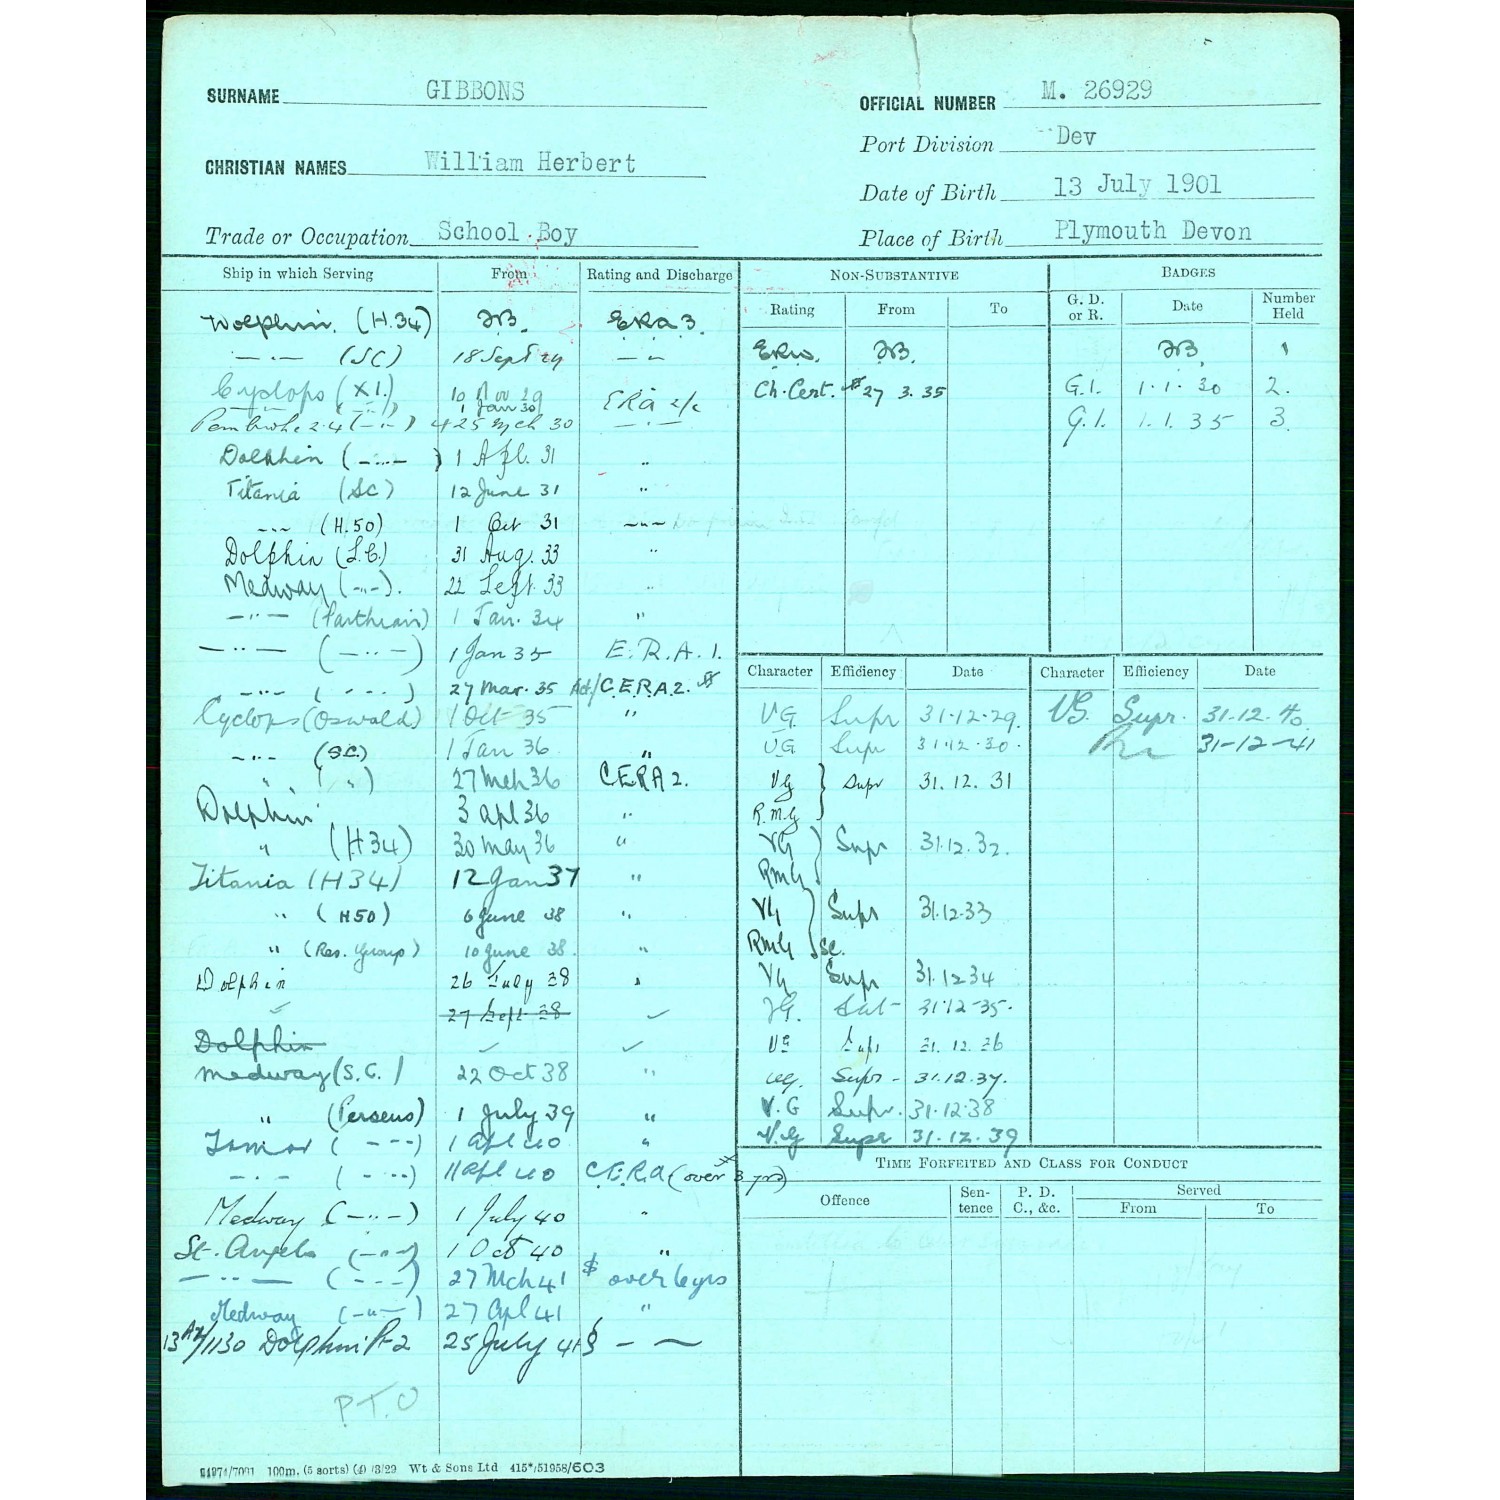 SURNAME GIBBONS
OFFICIAL NUMBER M. 26929
Port Division Dev
CHRISTIAN NAMES William Herbert
Date of Birth 13 July 1901
Trade or Occupation School Boy
Place of Birth Plymouth Devon
Ship in which Serving From Rating and Discharge
Dolphin. (H.34) ERA 3.
—..— (SC) 18 Sept 29 —..—
Cyclops (X1.) 10 Nov 29 ERA 2/c
1 Jan 30
Pembroke 2.4 (—..—) 25 Mch 30 —..—
Dolphin (—..—) 1 Apl. 31 ..
Titania (SC) 12 June 31 "
—..— (H.50) 1 Oct 31 —..—
Dolphin (S.C.) 31 Aug. 33 ..
Medway (—..—). 22 Sept. 33 ..
—..— (Parthian) 1 Jan. 34 "
—..— (—..—) 1 Jan 35 E.R.A. 1.
—..— (—..—) 27 Mar. 35 Act/C.E.R.A 2.
Cyclops (Oswald) 1 Oct 35 "
—..— (S.C.) 1 Jan 36 "
" (") 27 Mch 36 C.E.R.A 2.
Dolphin 3 Apl 36 "
" (H34) 30 May 36 "
Titania (H34) 12 Jan 37 "
" (H50) 6 June 38 "
" (Res. Group) 10 June 38. "
Dolphin 26 July 38 "
27 Sept 38
Dolphin
Medway (S.C.) 22 Oct 38 "
" (Perseus) 1 July 39 "
Tamar (—..—) 1 Apl 40 "
—..— (—..—) 11 Apl 40 C.E.R.A (over 3 yrs)
Medway (—..—) 1 July 40 "
St. Angelo (—..—) 1 Oct 40 "
—..— (—..—) 27 Mch 41 over 6 yrs
Medway (—..—) 27 Apl 41 "
Dolphin 25 July 41 — —
P.T.O
100m. (5 sorts) (4) /3/29 Wt & Sons Ltd 415*/51958/603
NON-SUBSTANTIVE
Rating From To
Ch. Cert. 27 3. 35
BADGES
G. D. or R. Date Number Held
1
G.1. 1.1.30 2.
G.1. 1.1.35 3.
Character Efficiency Date Character Efficiency Date
VG Supr 31.12.29. VG. Supr. 31.12.40
VG Supr 31.12.30. 31-12-41
VG Supr 31.12.31
R.M.G
VG Supr 31.12.32.
RMG
VG Supr 31.12.33
RMG SC.
VG Supr 31.12 34
VG. Sat— 31.12-35.
VG Supr 31.12.36
VG. Supr— 31.12.37.
V.G Supr. 31.12.38
V.G Supr 31.12.39
TIME FORFEITED AND CLASS FOR CONDUCT
Offence Sentence P. D. C., &c. Served
From To